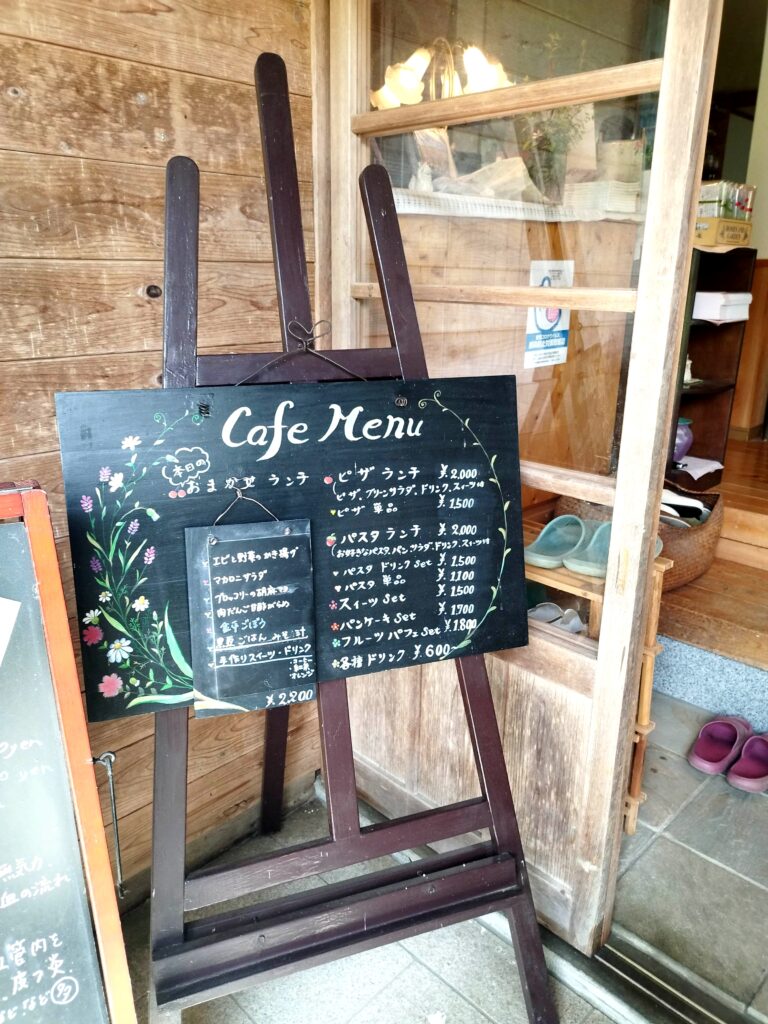 Cafe Menu
本日の
おまかせ ランチ
エビと野菜のかき揚げ
マカロニサラダ
ブロッコリーの胡麻
肉だんご
金平ごぼう
ごはん みそ汁
手作りスイーツ・ドリンク
・コーヒー
・紅茶
・オレンジ
¥2,200
ピザ ランチ ¥2,000
(ピザ、グリーンサラダ、ドリンク、スイーツ付
ピザ 単品 ¥1,500
パスタ ランチ ¥2,000
(お好きなパスタ、パン、サラダ、ドリンク、スイーツ付
パスタ ドリンク set ¥1,500
パスタ 単品 ¥1,100
スイーツ set ¥1,500
パンケーキ set ¥1,700
フルーツ パフェ set ¥1,800
各種 ドリンク ¥600
yen
yen
無気力
血の流れ
管内を
皮フ炎
などなど 多